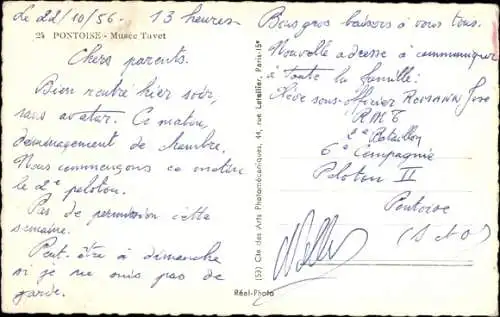 Le 22/10/56 - 13 heures
24 PONTOISE - Musée Tavet
Chers parents.
Bien rentré hier soir,
sans avatar. Ce matin,
déménagement de chambre.
Nous commençons ce matin
le 2e peloton.
Pas de permission cette
semaine.
Peut-être à dimanche
si je ne suis pas de
garde.
(53) Cie des Arts Photomécaniques, 44, rue Letellier, Paris-15e
Réel-Photo
Bons gros baisers à vous tous.
Nouvelle adresse à communiquer
à toute la famille:
Elève sous-officier ROMANN José
RMT
2e Bataillon
6e Compagnie
Peloton II
Pontoise
(S et O)